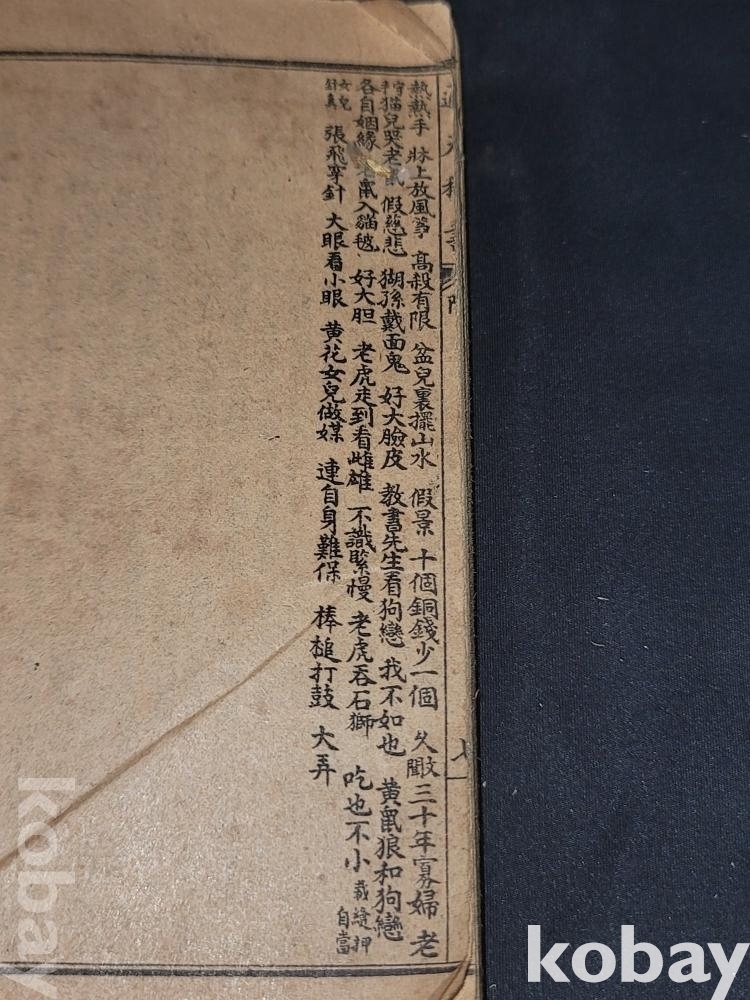 熱熱手 牀上放風箏 高殺有限 盆兒裏擺山水 假景 十個銅錢少一個 三十年寡婦 老
守 猫兒哭老鼠 假慈悲 猢孫戴面鬼 好大臉皮 教書先生看狗戀 我不如也 黄鼠狼和狗戀
各自姻緣 老鼠入貓毬 好大胆 老虎走到看雌雄 不識緊慢 老虎吞石獅 吃也不小 裁縫押 自當
女兒 針真 張飛穿針 大眼看小眼 黄花女兒做媒 連自身難保 棒槌打鼓 大弄
kobay
kobay